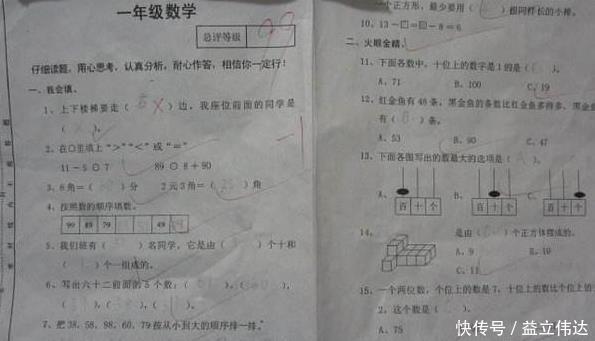 一年级数学
总评等级
99
仔细读题，用心思考，认真分析，耐心作答，相信你一定行！
一、我会填。
1、上下楼梯要走（ ）边，我座位前面的同学是
（ ）。
-1
2、在○里填上“>”“<”或“=”
11－5 ○ 7 89 ○ 8＋90
3、6角=（ ）分 2元3角=（ ）角
4、按照数的顺序填数。
99 89 79 49
5、我们班有（ ）名同学，它是由（ ）个十和
（ ）个一组成的。
6、写出六十二前面的5个数：（ ），（ ），
（ ），（ ），（ ）。
7、把38、58、98、60、79按从小到大的顺序排一排。
个正方形，最少要用（ ）根同样长的小棒。
10、13－□＝□－8＝6
二、火眼金睛。
11、下面各数中，十位上的数字是1的是（ ）。
A、71 B、100 C、19
12、红金鱼有48条，黑金鱼的条数比红金鱼多得多，黑金鱼
有（ ）条。
A、53 B、90 C、47
13、下面各图写出的数最大的选项是（A）。
A、 B、 C、
百 十 个 百 十 个 百 十 个
14、 是由（ ）个正方体摆成的。
A、9 B、10
C、11
15、一个两位数，个位上的数是7，十位上的数比个位上的
2，这个数是（ ）。
A、75
快传号 / 益立伟达